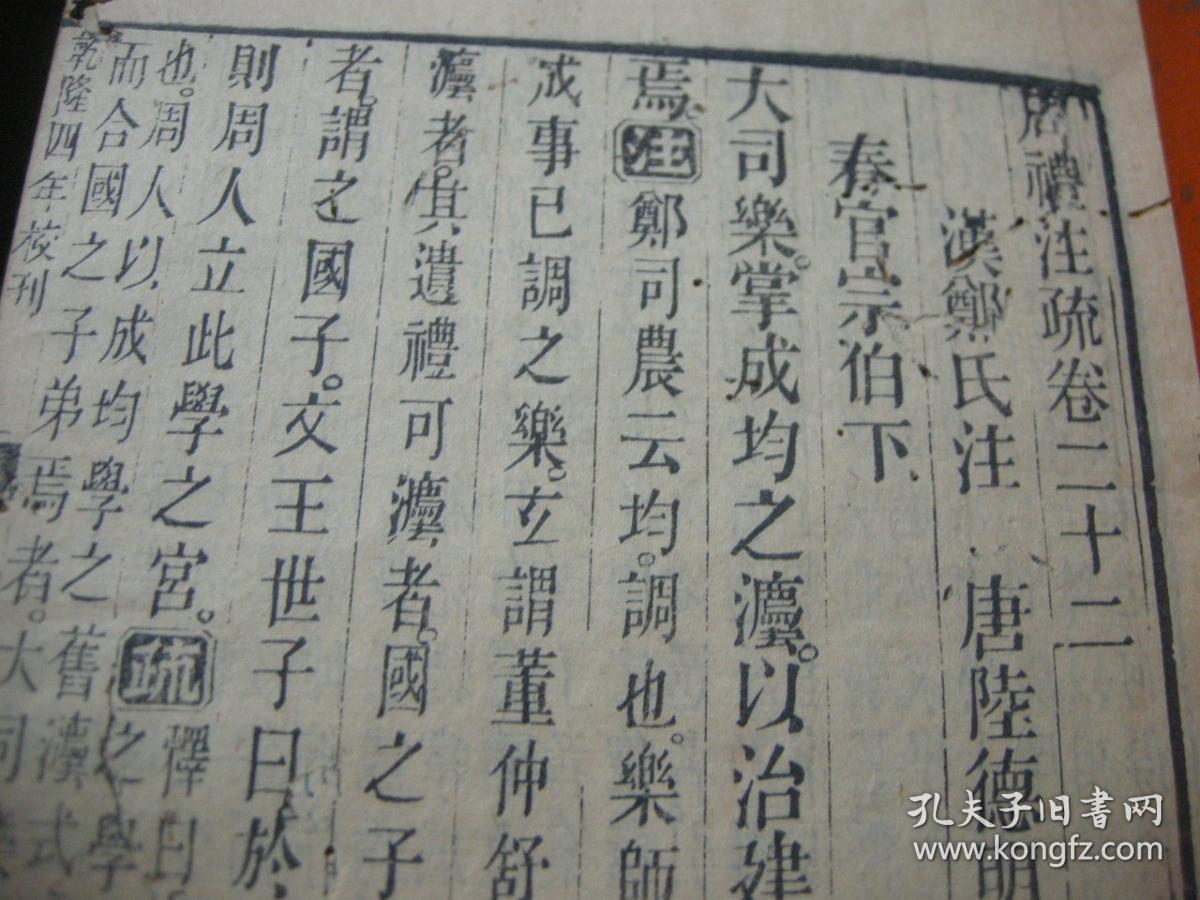 周禮注疏卷二十二
漢鄭氏注 唐陸德明
春官宗伯下
大司樂。掌成均之灋。以治建
焉。注鄭司農云均。調也。樂師
成事已調之樂。玄謂董仲舒
灋者。其遺禮可灋者。國之子
者。謂之國子。文王世子曰於
則周人立此學之宮。疏釋曰
也。周人以成均學之
而合國之子弟焉者。大司
乾隆四年校刊
孔夫子旧书网
www.kongfz.com